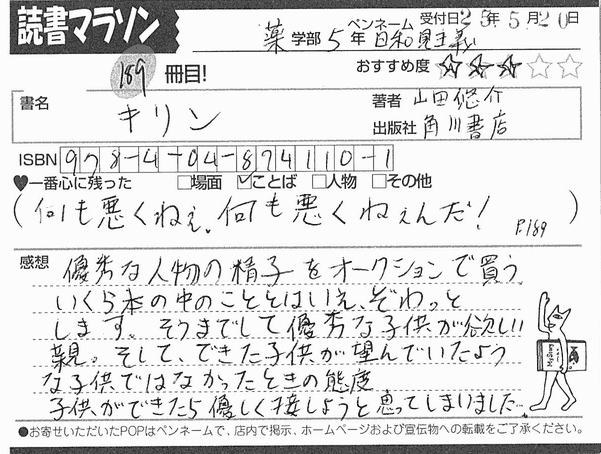 読書マラソン
薬学部5年 ペンネーム 日和見主義 受付日25年5月20日
189冊目!
おすすめ度 ★★★☆☆
書名 キリン
著者 山田悠介
出版社 角川書店
ISBN 978-4-04-874110-1
♥一番心に残った □場面 ☑ことば □人物 □その他
(何も悪くねぇ。何も悪くねぇんだ! P.189)
感想 優秀な人物の精子をオークションで買う。
いくら本の中のこととはいえ、ぞわっと
します。そうまでして優秀な子供が欲しい
親。そして、できた子供が望んでいたよう
な子供ではなかったときの態度。
子供ができたら優しく接しようと思ってしまいました…。
●お寄せいただいたPOPはペンネームで、店内で掲示、ホームページおよび宣伝物への転載をご了承ください。